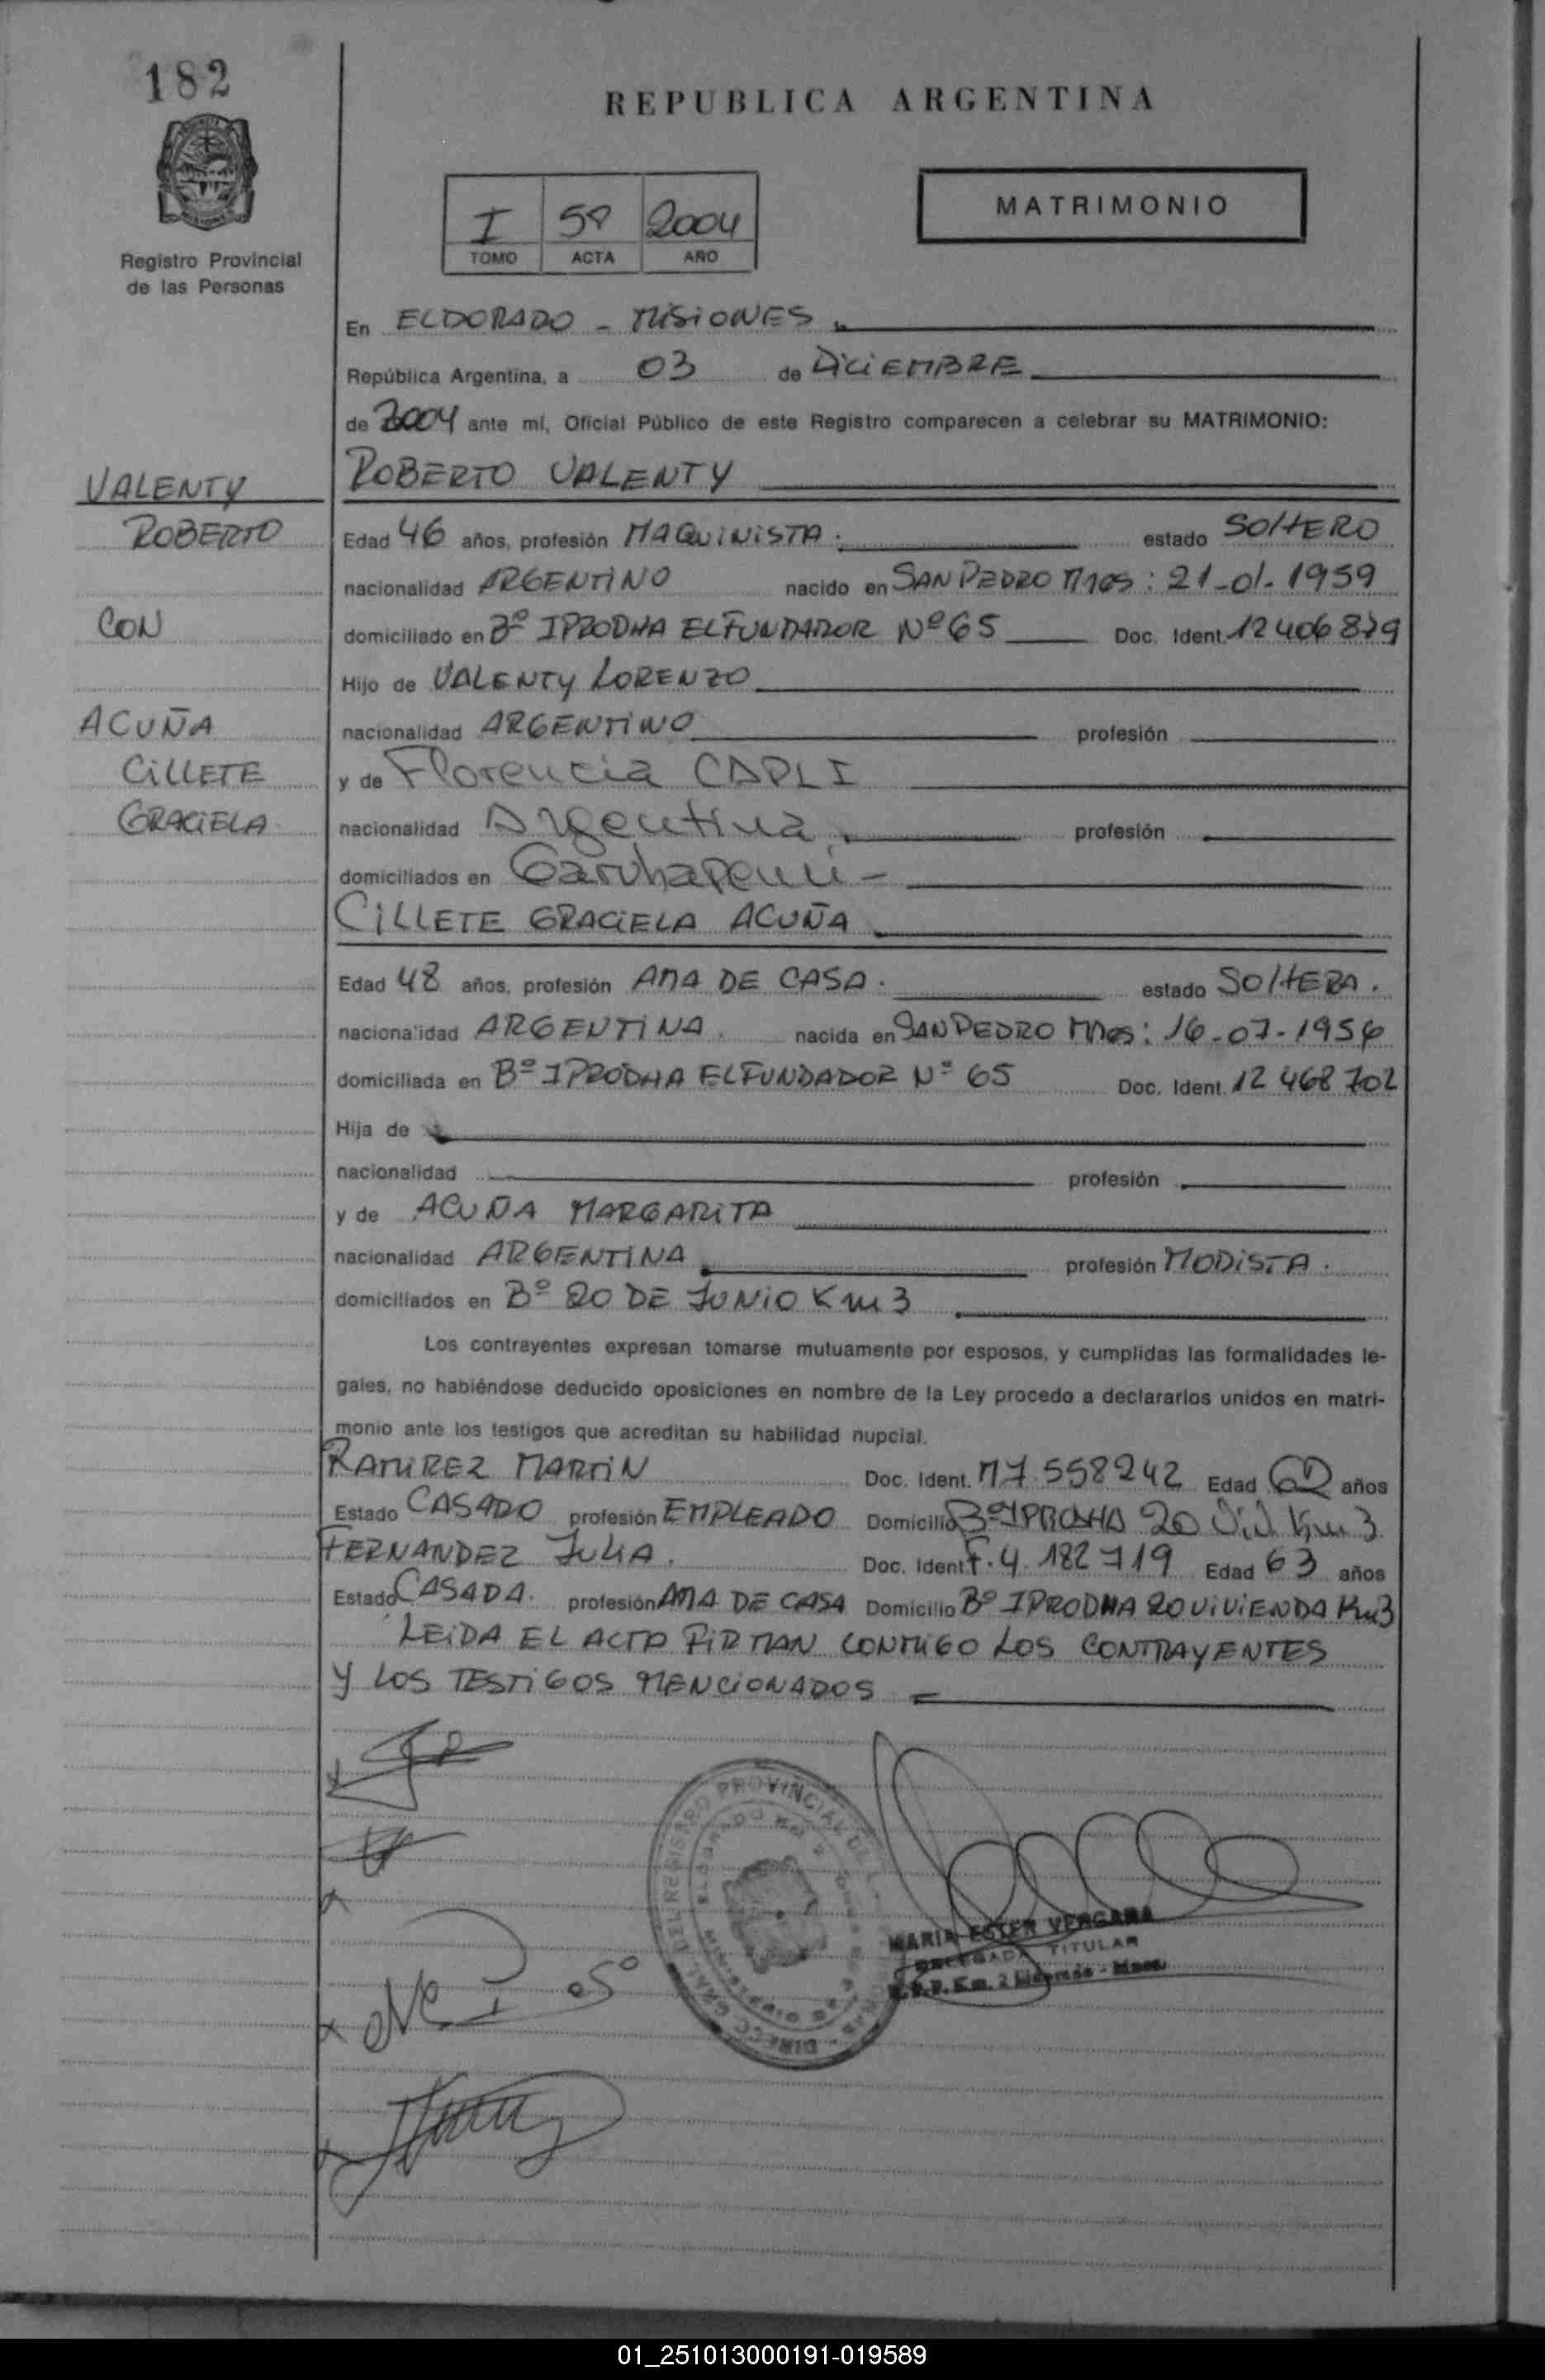 182
REPUBLICA ARGENTINA
MATRIMONIO
I 2004
TOMO ACTA AÑO
Registro Provincial
de las Personas
En ELDORADO - MISIONES
República Argentina, a 03 de DICIEMBRE
de 2004 ante mí, Oficial Público de este Registro comparecen a celebrar su MATRIMONIO:
VALENTY
ROBERTO
CON
ACUÑA
CILLETE
GRACIELA
ROBERTO VALENTY
Edad 46 años, profesión MAQUINISTA. estado SOLTERO
nacionalidad ARGENTINO nacido en SAN PEDRO Mnes: 21-01-1959
domiciliado en Bº IPRODHA EL FUNDADOR Nº 65 Doc. Ident. 12 406 879
Hijo de VALENTY LORENZO
nacionalidad ARGENTINO profesión
y de Florencia
nacionalidad Argentina profesión
domiciliados en Garuhapemi -
CILLETE GRACIELA ACUÑA
Edad 48 años, profesión AMA DE CASA. estado SOLTERA.
nacionalidad ARGENTINA. nacida en SAN PEDRO Mnes: 16-07-1956
domiciliada en Bº IPRODHA EL FUNDADOR Nº 65 Doc. Ident. 12 468 702
Hija de
nacionalidad profesión
y de ACUÑA MARGARITA
nacionalidad ARGENTINA profesión MODISTA.
domiciliados en Bº 20 DE JUNIO Km 3
Los contrayentes expresan tomarse mutuamente por esposos, y cumplidas las formalidades le-
gales, no habiéndose deducido oposiciones en nombre de la Ley procedo a declararlos unidos en matri-
monio ante los testigos que acreditan su habilidad nupcial.
RAMIREZ MARTIN Doc. Ident. M 7.558242 Edad 62 años
Estado CASADO profesión EMPLEADO Domicilio Bº IPRODHA 20 Viv Km 3
FERNANDEZ JULIA. Doc. Ident. F. 4.182719 Edad 63 años
Estado CASADA. profesión AMA DE CASA Domicilio Bº IPRODHA 20 VIVIENDA Km3
LEIDA EL ACTA FIRMAN CONMIGO LOS CONTRAYENTES
Y LOS TESTIGOS MENCIONADOS
MARIA ESTER VERGARA
DELEGADA TITULAR
01_251013000191-019589